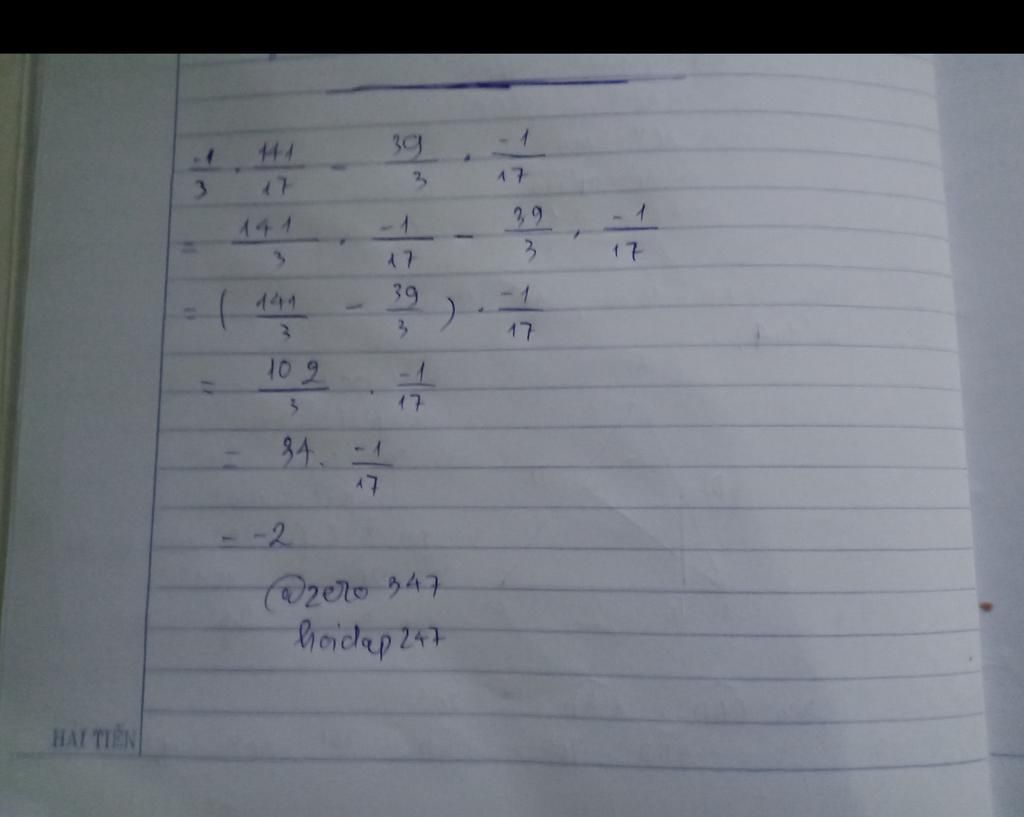 -1/3 . 141/17 - 39/3 . -1/17
= 141/3 . -1/17 - 39/3 . -1/17
= ( 141/3 - 39/3 ) . -1/17
= 102/3 . -1/17
= 34 . -1/17
= -2
@zero 347
hoidap247
HẢI TIẾN